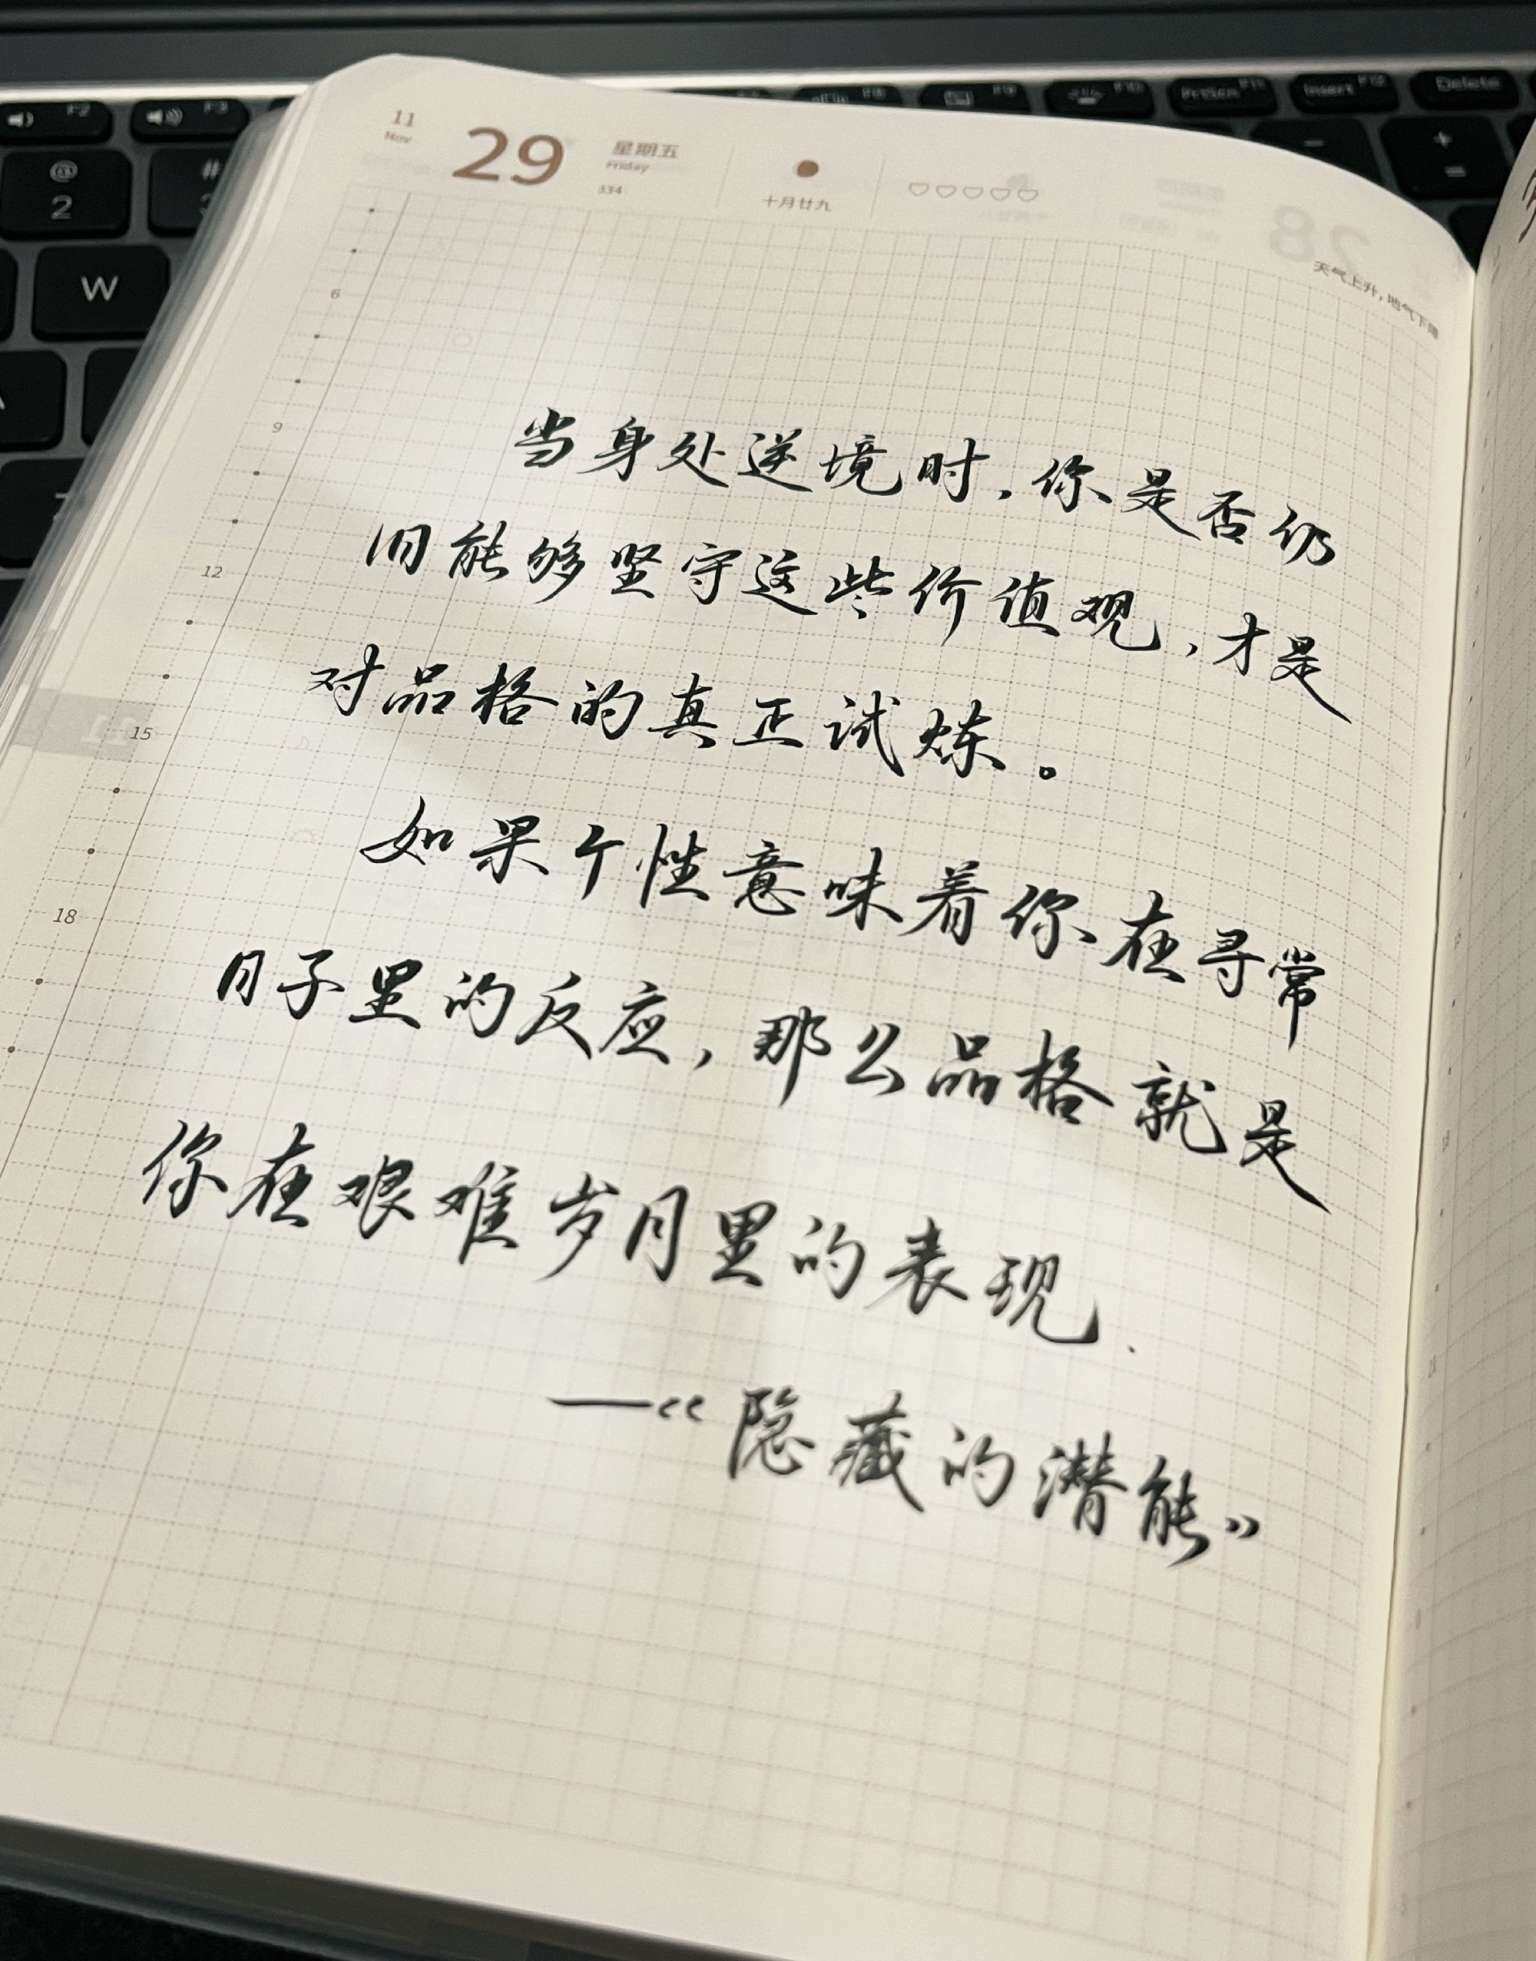 11
Nov
29
星期五
Friday
334
十月廿九
天气上升，地气下降
当身处逆境时，你是否仍
旧能够坚守这些价值观，才是
对品格的真正试炼。
如果个性意味着你在寻常
日子里的反应，那么品格就是
你在艰难岁月里的表现.
—“隐藏的潜能”
6
9
12
15
18
F2
F3
F9
F10
PrtScn F11
Insert F12
Delete
@
2
#
W
+
=